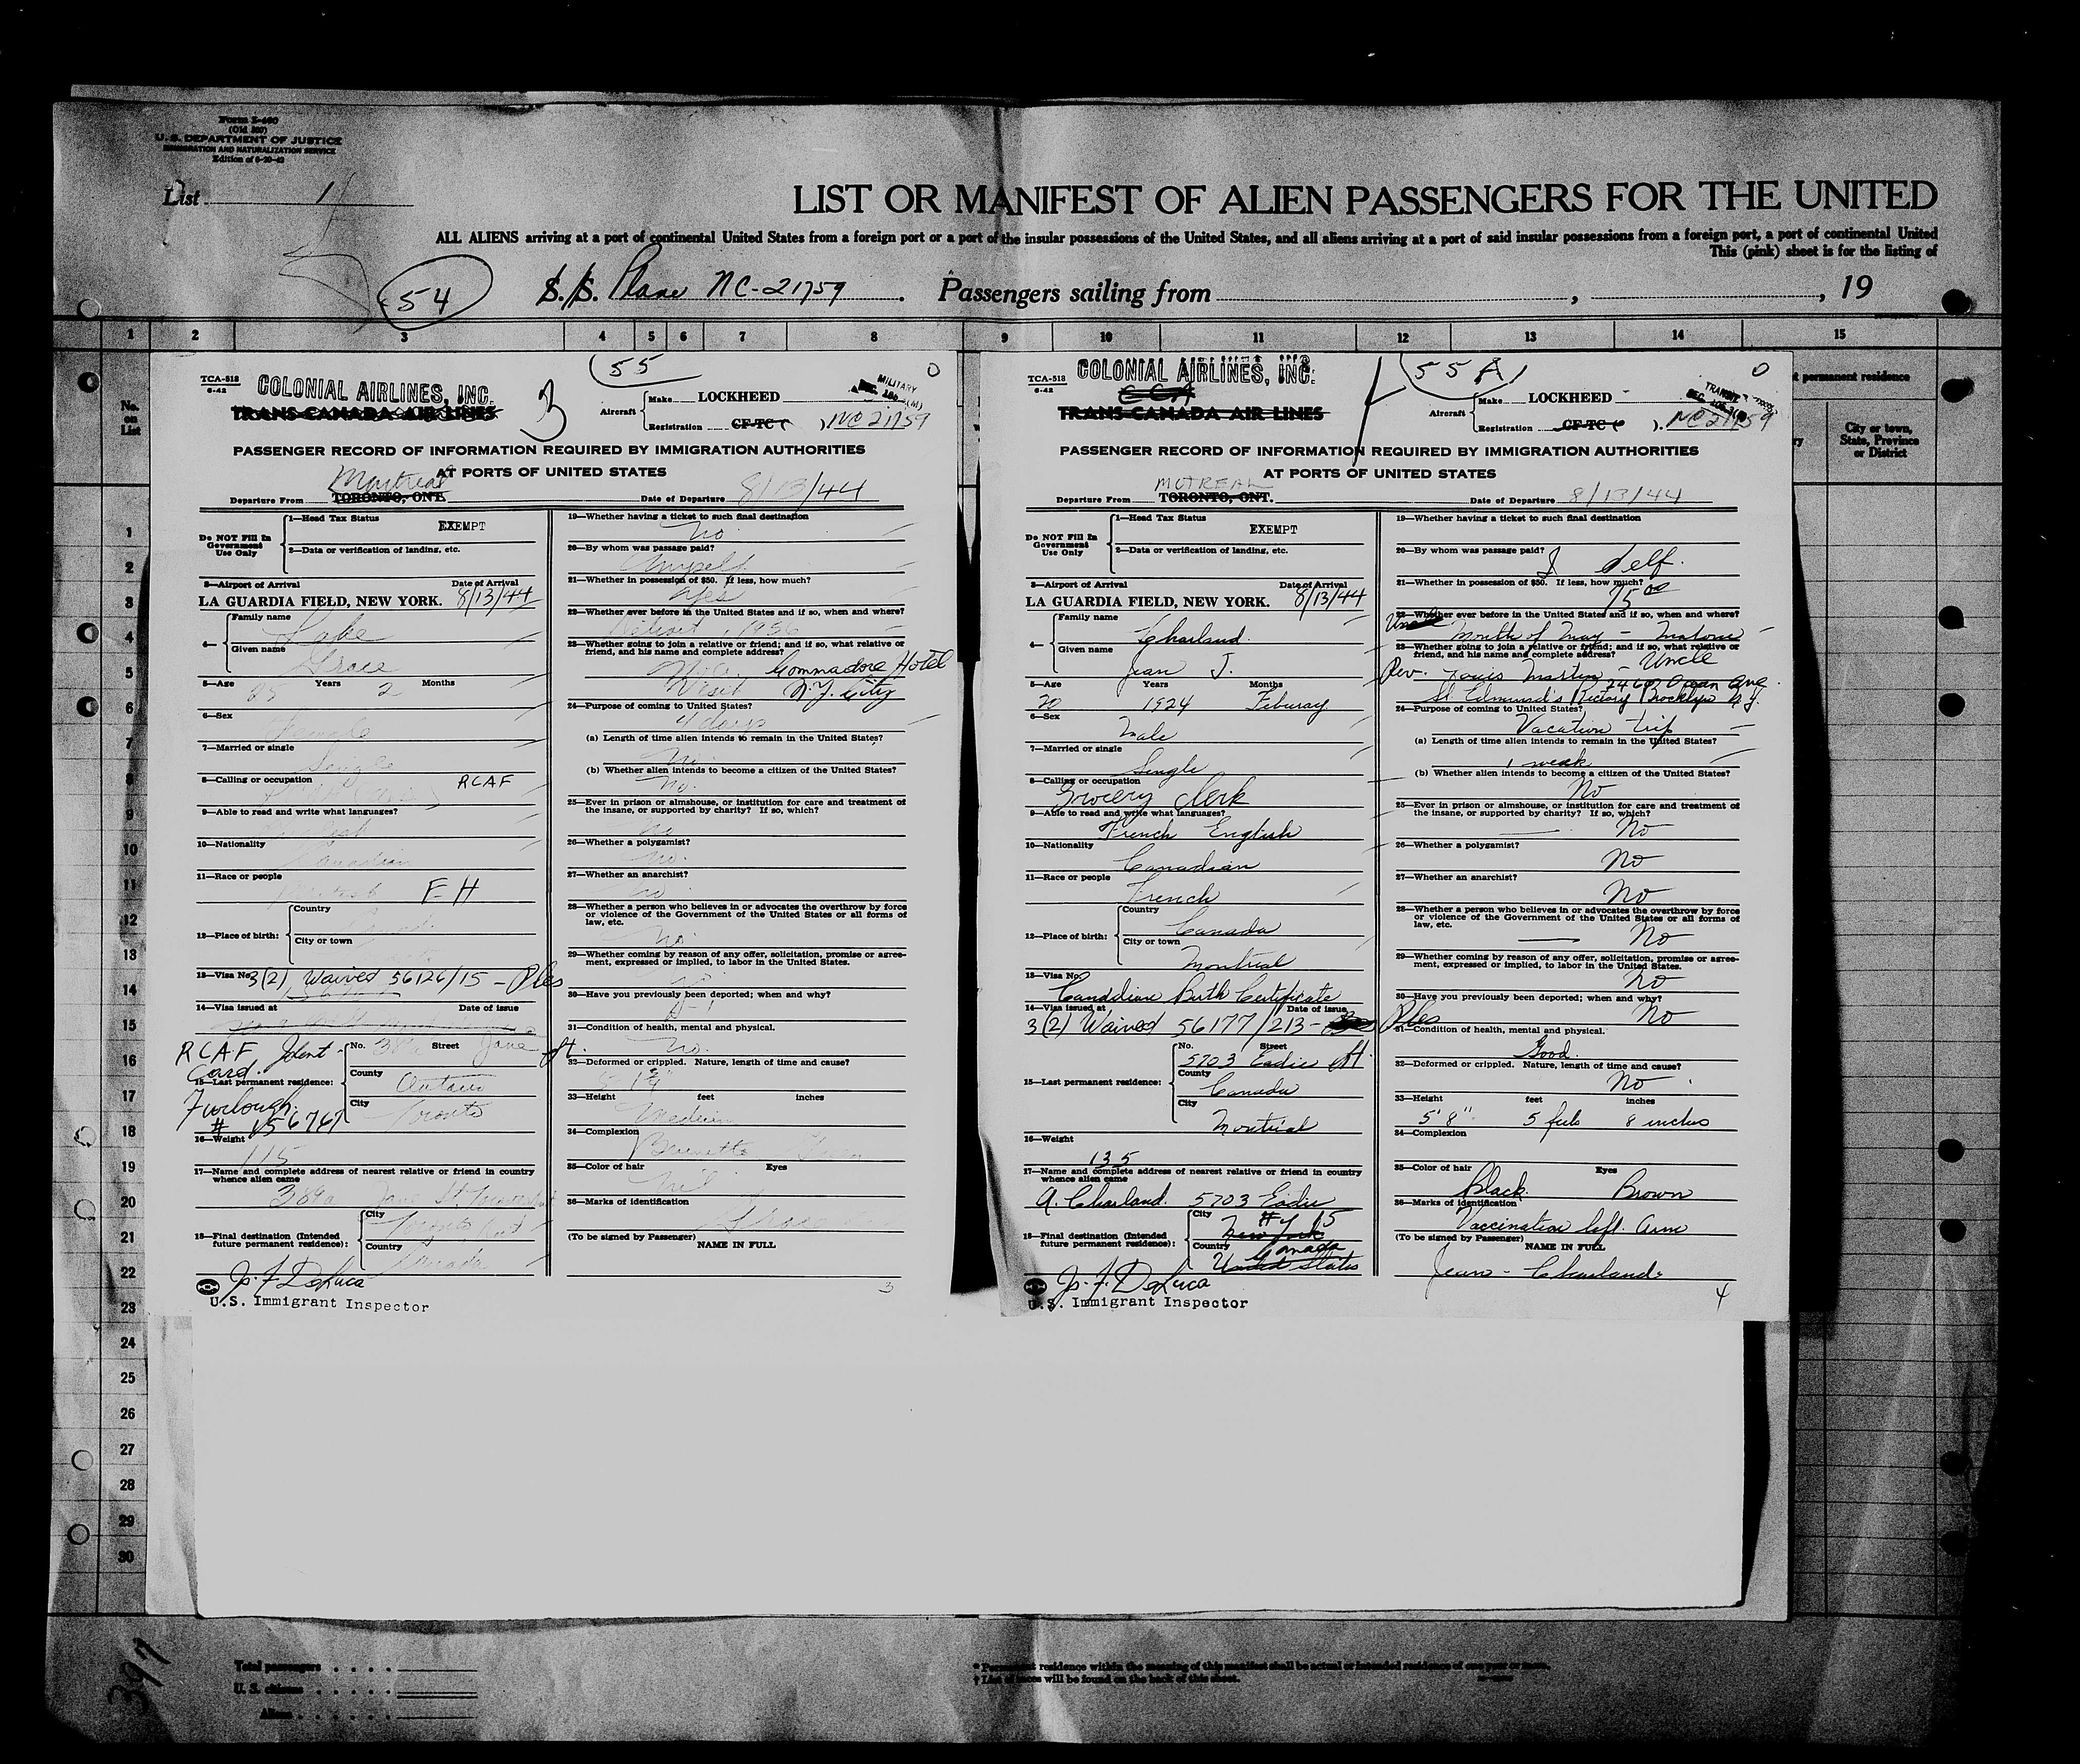 Form I-400
(Old 500)
U. S. DEPARTMENT OF JUSTICE
IMMIGRATION AND NATURALIZATION SERVICE
List 1
LIST OR MANIFEST OF ALIEN PASSENGERS FOR THE UNITED
ALL ALIENS arriving at a port of continental United States from a foreign port or a port of the insular possessions of the United States, and all aliens arriving at a port of said insular possessions from a foreign port, a port of continental United
This (pink) sheet is for the listing of
54 S.S. Plane NC-21759 . Passengers sailing from , , 19
1 2 3 4 5 6 7 8 9 10 11 12 13 14 15
No. on List
permanent residence
City or town, State, Province or District
1
2
3
4
5
6
7
8
9
10
11
12
13
14
15
16
17
18
19
20
21
22
23
24
25
26
27
28
29
30
55 0
TCA-518
6-42
COLONIAL AIRLINES, INC. 3
TRANS-CANADA AIR LINES
MILITARY
Aircraft
Make LOCKHEED
Registration CF-TC ( ) NC 21759
PASSENGER RECORD OF INFORMATION REQUIRED BY IMMIGRATION AUTHORITIES
AT PORTS OF UNITED STATES
Montreal
Departure From TORONTO, ONT. Date of Departure 8/13/44
Do NOT Fill In Government Use Only
1—Head Tax Status EXEMPT
2—Data or verification of landing, etc.
3—Airport of Arrival Date of Arrival
LA GUARDIA FIELD, NEW YORK. 8/13/44
4—
Family name
Lake
Given name
Grace
5—Age Years Months
2
6—Sex
Female
7—Married or single
Single
8—Calling or occupation RCAF
9—Able to read and write what languages?
English
10—Nationality
Canadian
11—Race or people
F H
12—Place of birth:
Country
Canada
City or town
13—Visa No. 3(2) Waived 56126/15 - Ples
14—Visa issued at Date of issue
RCAF Ident. Card.
Furlough
# 156767
15—Last permanent residence:
No. Street
Jane St.
County
Ontario
City
Toronto
16—Weight
115
17—Name and complete address of nearest relative or friend in country whence alien came
389a Jane St. Toronto
18—Final destination (Intended future permanent residence):
City
Toronto Ont
Country
Canada
Jo. F. DeLuca
U.S. Immigrant Inspector
19—Whether having a ticket to such final destination
No
20—By whom was passage paid?
Myself
21—Whether in possession of $50. If less, how much?
Yes
22—Whether ever before in the United States and if so, when and where?
Detroit 1936
23—Whether going to join a relative or friend; and if so, what relative or friend, and his name and complete address?
Commadore Hotel
Visit N.Y. City
24—Purpose of coming to United States?
4 days
(a) Length of time alien intends to remain in the United States?
No
(b) Whether alien intends to become a citizen of the United States?
No.
25—Ever in prison or almshouse, or institution for care and treatment of the insane, or supported by charity? If so, which?
No
26—Whether a polygamist?
No.
27—Whether an anarchist?
No
28—Whether a person who believes in or advocates the overthrow by force or violence of the Government of the United States or all forms of law, etc.
No
29—Whether coming by reason of any offer, solicitation, promise or agreement, expressed or implied, to labor in the United States.
30—Have you previously been deported; when and why?
A-1
31—Condition of health, mental and physical.
No.
32—Deformed or crippled. Nature, length of time and cause?
33—Height feet inches
Medium
34—Complexion
Brunette
35—Color of hair Eyes
Nil
36—Marks of identification
Grace
(To be signed by Passenger) NAME IN FULL
3
55A 0
TCA-518
6-42
COLONIAL AIRLINES, INC.
CCA
TRANS-CANADA AIR LINES
TRANSIT
Aircraft
Make LOCKHEED
Registration CF-TC ( ). NC 21759
PASSENGER RECORD OF INFORMATION REQUIRED BY IMMIGRATION AUTHORITIES
AT PORTS OF UNITED STATES
MOTREAL
Departure From TORONTO, ONT. Date of Departure 8/13/44
Do NOT Fill In Government Use Only
1—Head Tax Status EXEMPT
2—Data or verification of landing, etc.
3—Airport of Arrival Date of Arrival
LA GUARDIA FIELD, NEW YORK. 8/13/44
4—
Family name
Charland.
Given name
Jean J.
5—Age Years Months
20 1924 Feburay
6—Sex
Male
7—Married or single
Single
8—Calling or occupation
Grocery Clerk
9—Able to read and write what languages?
French English
10—Nationality
Canadian
11—Race or people
French
12—Place of birth:
Country
Canada
City or town
Montreal
13—Visa No.
Canadian Birth Certificate
14—Visa issued at Date of issue
3(2) Waived 56177/213- Ples
15—Last permanent residence:
No. Street
5703 Eadie St.
County
Canada
City
Montreal
16—Weight
135
17—Name and complete address of nearest relative or friend in country whence alien came
A. Charland. 5703 Eadie
18—Final destination (Intended future permanent residence):
City
New York
Country
Canada
United States
Jo. F. DeLuca
U.S. Immigrant Inspector
19—Whether having a ticket to such final destination
20—By whom was passage paid?
I self.
21—Whether in possession of $50. If less, how much?
75.00
22—Whether ever before in the United States and if so, when and where?
Month of May - Malone
23—Whether going to join a relative or friend; and if so, what relative or friend, and his name and complete address?
Rev. Louis Martin - Uncle
2460 Ocean Ave.
St. Edmund's Rectory Brooklyn N.Y.
24—Purpose of coming to United States?
Vacation trip
(a) Length of time alien intends to remain in the United States?
1 week
(b) Whether alien intends to become a citizen of the United States?
No
25—Ever in prison or almshouse, or institution for care and treatment of the insane, or supported by charity? If so, which?
No
26—Whether a polygamist?
No
27—Whether an anarchist?
No
28—Whether a person who believes in or advocates the overthrow by force or violence of the Government of the United States or all forms of law, etc.
No
29—Whether coming by reason of any offer, solicitation, promise or agreement, expressed or implied, to labor in the United States.
No
30—Have you previously been deported; when and why?
No
31—Condition of health, mental and physical.
Good.
32—Deformed or crippled. Nature, length of time and cause?
No
33—Height feet inches
5'8" 5 feet 8 inches
34—Complexion
35—Color of hair Eyes
Black Brown
36—Marks of identification
Vaccination left arm
(To be signed by Passenger) NAME IN FULL
Jean - Charland.
4
397
Total passengers
U. S. citizens
Aliens
* Permanent residence within the meaning of this manifest shall be actual or intended residence of one year or more.
† List of races will be found on the back of this sheet.